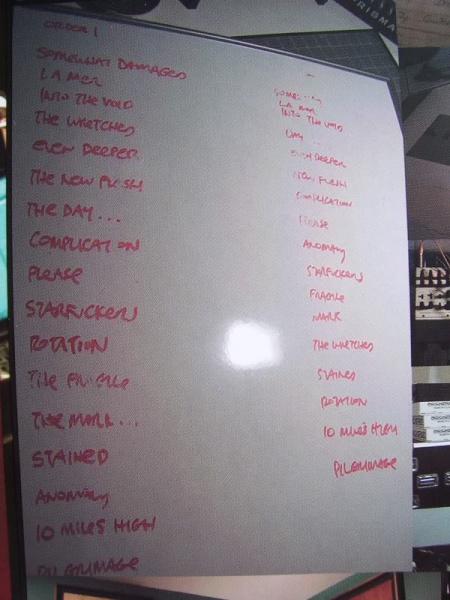 ORDER 1
SOMEWHAT DAMAGED
LA MER
INTO THE VOID
THE WRETCHED
EVEN DEEPER
THE NEW FLESH
THE DAY...
COMPLICATION
PLEASE
STARFUCKERS
ROTATION
THE FRAGILE
THE MARK...
STAINED
ANOMALY
10 MILES HIGH
PILGRIMAGE
SOME...
LA MER
INTO THE VOID
DAY...
EVEN DEEPER
NEW FLESH
COMPLICATION
PLEASE
ANOMALY
STARFUCKERS
FRAGILE
MARK
THE WRETCHED
STAINED
ROTATION
10 MILES HIGH
PILGRIMAGE
PRISMA